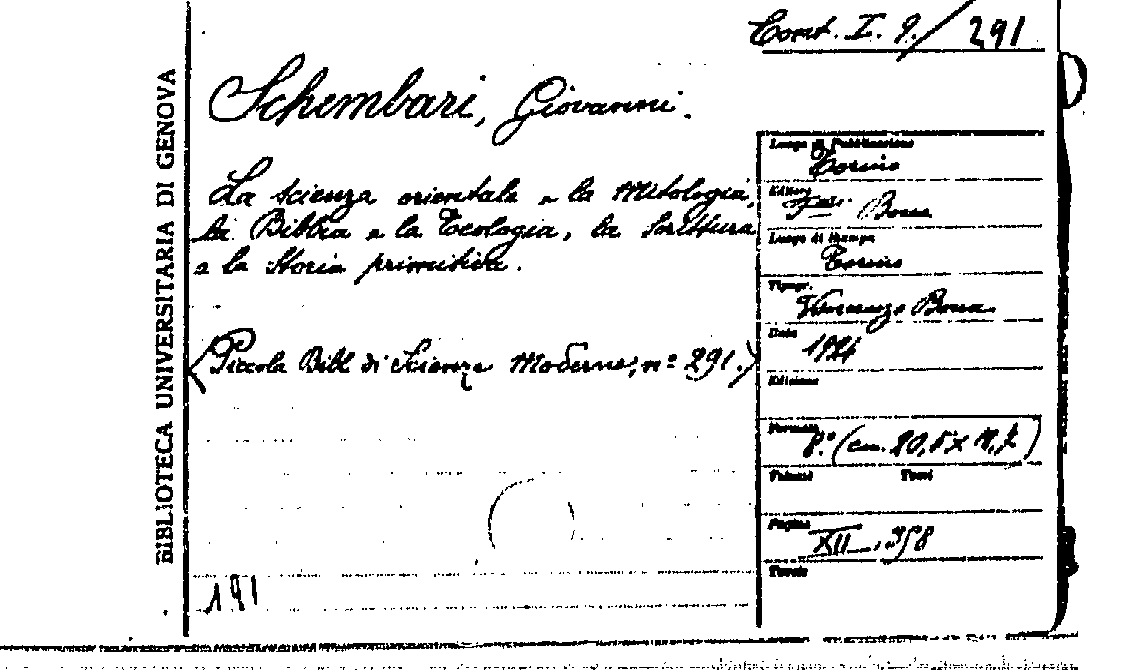 Cont. I. 9. / 291
BIBLIOTECA UNIVERSITARIA DI GENOVA
Schembari, Giovanni.
La scienza orientale e la Mitologia,
la Bibbia e la Teologia, la Scrittura
e la Storia primitiva.
(Piccola Bibl di Scienze Moderne; n° 291.)
191
Luogo di Pubblicazione
Torino
Editore
F.lli Bocca
Luogo di stampa
Torino
Tipogr.
Vincenzo Bona
Data
1924
Edizione
Formato
8.° (cm.
Volumi Tomi
Pagine
XII, 358
Tavole